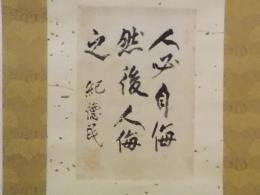 人必自侮
然後人侮
之 紀德民